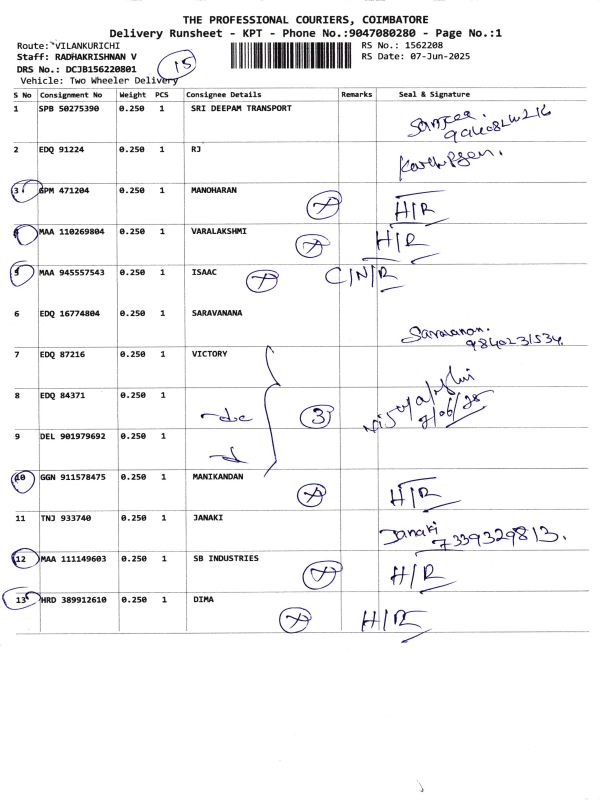 THE PROFESSIONAL COURIERS, COIMBATORE
Delivery Runsheet - KPT - Phone No.:9047080280 - Page No.:1
Route: VILANKURICHI
RS No.: 1562208
Staff: RADHAKRISHNAN V
RS Date: 07-Jun-2025
DRS No.: DCJB156220801
15
Vehicle: Two Wheeler Delivery
S No Consignment No Weight PCS Consignee Details Remarks Seal & Signature
1 SPB 50275390 0.250 1 SRI DEEPAM TRANSPORT
2 EDQ 91224 0.250 1 RJ
3 GPM 471204 0.250 1 MANOHARAN H/R
4 MAA 110269804 0.250 1 VARALAKSHMI H/R
5 MAA 945557543 0.250 1 ISAAC C/N/R
6 EDQ 16774804 0.250 1 SARAVANANA Saravanan.
9840231534.
7 EDQ 87216 0.250 1 VICTORY
8 EDQ 84371 0.250 1 do 3
9 DEL 901979692 0.250 1
10 GGN 911578475 0.250 1 MANIKANDAN H/R
11 TNJ 933740 0.250 1 JANAKI Janaki
7339329813.
12 MAA 111149603 0.250 1 SB INDUSTRIES H/R
13 HRD 389912610 0.250 1 DIMA H/R